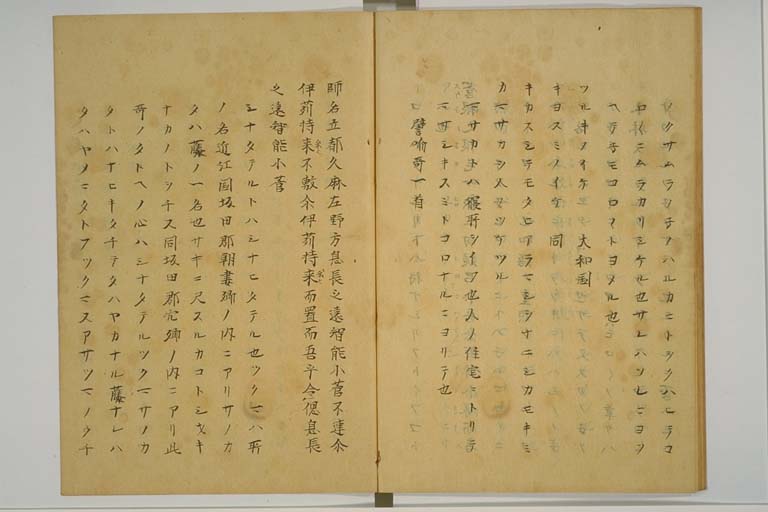 ハルカニトツクハヒテコ
ムラカリシケル也サレハ
トヨメル也
ツルキノイケ 大和国
キヨスミノイケ 同
キカスシテモタアラマシヲナニシカモキミ
カマサカヲ人ノツケツル
マサカトハ寝所ヲイフ也人ノ住宅ニトリテ
マサシキスミトコロナルニヨリテ也
譬喩哥一首
師名立都久麻左野方息長之遠智能小菅不連尓
伊苅持来不敷尓伊苅持来而置而吾乎令偲息長
之遠智能小菅
シナタテルトハシナヒタテル也ツクマハ所
ノ名近江国坂田郡朝妻郷ノ内ニアリサノカ
タハ藤ノ一名也サキニ尺スルカコトシヲキ
ナカノ同坂田郡宍郷ノ内ニアリ此
哥ノタトヘノ心ハシナタテルツクマサノカ
タトハナヒキタチテタハヤカナル藤ナレハ
タハヤメニタトフツクマスアサツマノウチ